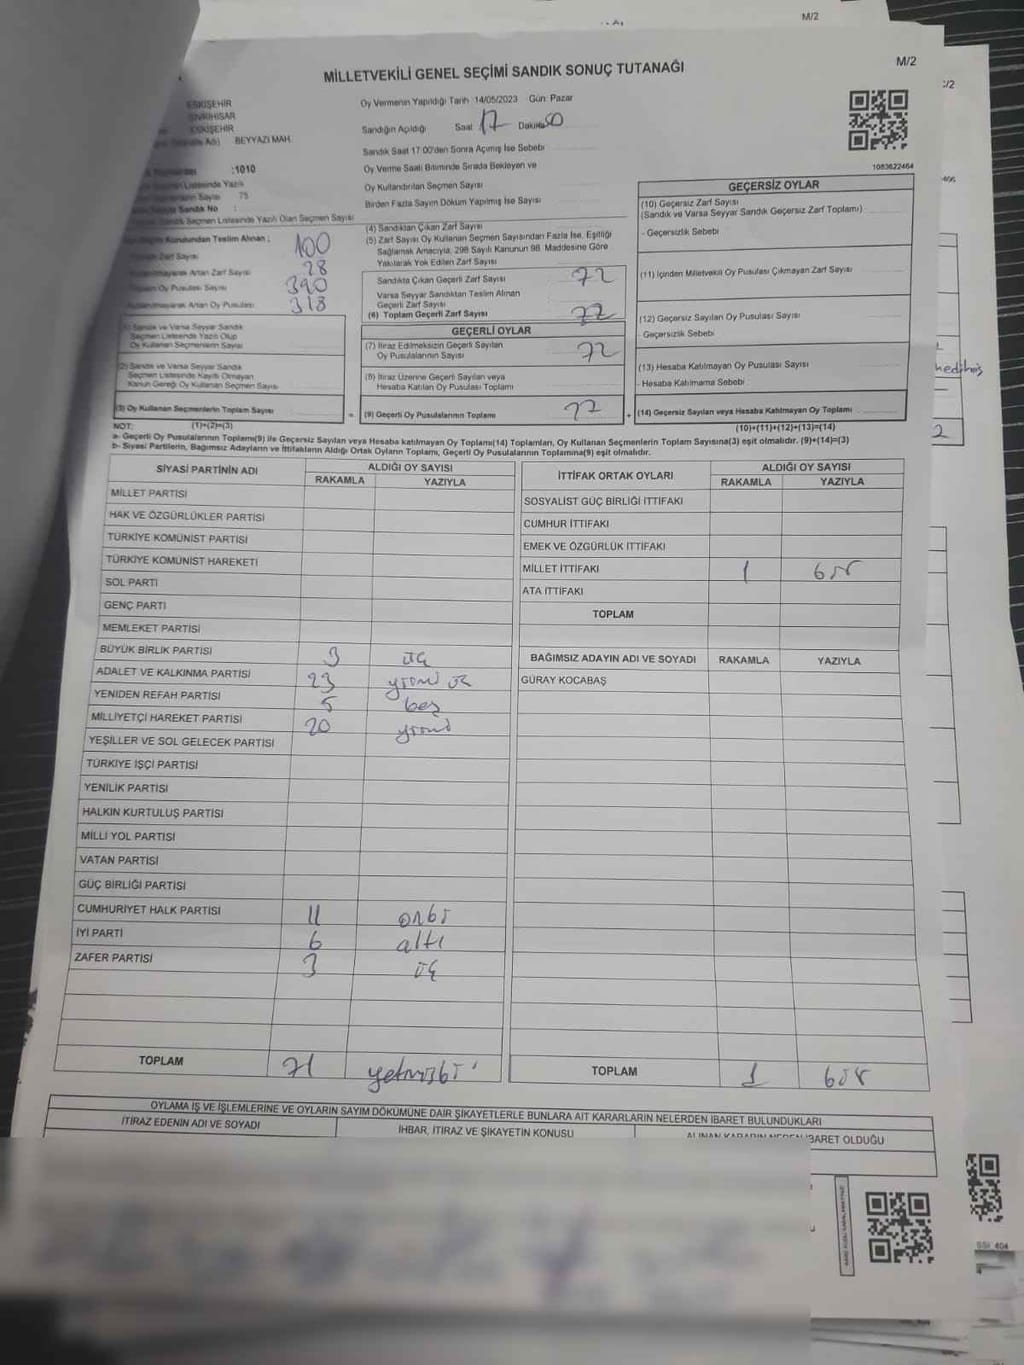 M/2
M/2
MİLLETVEKİLİ GENEL SEÇİMİ SANDIK SONUÇ TUTANAĞI
ESKİŞEHİR
SİVRİHİSAR
ESKİŞEHİR
BEYYAZI MAH.
:1010
75
Oy Vermenin Yapıldığı Tarih 14/05/2023 Gün: Pazar
Sandığın Açıldığı Saat 17 Dakika 50
Sandık Saat 17:00'den Sonra Açımış İse Sebebi
Oy Verme Saati Bitiminde Sırada Bekleyen ve
Oy Kullandırılan Seçmen Sayısı
Birden Fazla Sayım Döküm Yapılmış İse Sayısı
1083622464
Seçmen Listesinde Yazılı Olan Seçmen Sayısı
Teslim Alınan ;
Zarf Sayısı 100
Artan Zarf Sayısı 28
Oy Pusulası Sayısı 390
Artan Oy Pusulası 318
(1) Sandık ve Varsa Seyyar Sandık
Seçmen Listesinde Yazılı Olup
Oy Kullanan Seçmenlerin Sayısı
(2) Sandık ve Varsa Seyyar Sandık
Seçmen Listesinde Kayıtlı Olmayan
Kanun Gereği Oy Kullanan Seçmen Sayısı
(3) Oy Kullanan Seçmenlerin Toplam Sayısı
(4) Sandıktan Çıkan Zarf Sayısı
(5) Zarf Sayısı Oy Kullanan Seçmen Sayısından Fazla İse, Eşitliği
Sağlamak Amacıyla, 298 Sayılı Kanunun 98. Maddesine Göre
Yakılarak Yok Edilen Zarf Sayısı
Sandıkta Çıkan Geçerli Zarf Sayısı 72
Varsa Seyyar Sandıktan Teslim Alınan
Geçerli Zarf Sayısı
(6) Toplam Geçerli Zarf Sayısı 72
GEÇERLİ OYLAR
(7) İtiraz Edilmeksizin Geçerli Sayılan
Oy Pusulalarının Sayısı 72
(8) İtiraz Üzerine Geçerli Sayılan veya
Hesaba Katılan Oy Pusulası Toplamı
= (9) Geçerli Oy Pusulalarının Toplamı 72
GEÇERSİZ OYLAR
(10) Geçersiz Zarf Sayısı
(Sandık ve Varsa Seyyar Sandık Geçersiz Zarf Toplamı)
- Geçersizlik Sebebi
(11) İçinden Milletvekili Oy Pusulası Çıkmayan Zarf Sayısı
(12) Geçersiz Sayılan Oy Pusulası Sayısı
- Geçersizlik Sebebi
(13) Hesaba Katılmayan Oy Pusulası Sayısı
- Hesaba Katılmama Sebebi
+ (14) Geçersiz Sayılan veya Hesaba Katılmayan Oy Toplamı
NOT: (1)+(2)=(3) (10)+(11)+(12)+(13)=(14)
a- Geçerli Oy Pusulalarının Toplamı(9) ile Geçersiz Sayılan veya Hesaba katılmayan Oy Toplamı(14) Toplamları, Oy Kullanan Seçmenlerin Toplam Sayısına(3) eşit olmalıdır. (9)+(14)=(3)
b- Siyasi Partilerin, Bağımsız Adayların ve İttifakların Aldığı Ortak Oyların Toplamı, Geçerli Oy Pusulalarının Toplamına(9) eşit olmalıdır.
SİYASİ PARTİNİN ADI ALDIĞI OY SAYISI
RAKAMLA YAZIYLA
MİLLET PARTİSİ
HAK VE ÖZGÜRLÜKLER PARTİSİ
TÜRKİYE KOMÜNİST PARTİSİ
TÜRKİYE KOMÜNİST HAREKETİ
SOL PARTİ
GENÇ PARTİ
MEMLEKET PARTİSİ
BÜYÜK BİRLİK PARTİSİ 3 üç
ADALET VE KALKINMA PARTİSİ 23 yirmi üç
YENİDEN REFAH PARTİSİ 5 beş
MİLLİYETÇİ HAREKET PARTİSİ 20 yirmi
YEŞİLLER VE SOL GELECEK PARTİSİ
TÜRKİYE İŞÇİ PARTİSİ
YENİLİK PARTİSİ
HALKIN KURTULUŞ PARTİSİ
MİLLİ YOL PARTİSİ
VATAN PARTİSİ
GÜÇ BİRLİĞİ PARTİSİ
CUMHURİYET HALK PARTİSİ 11 onbir
İYİ PARTİ 6 altı
ZAFER PARTİSİ 3 üç
TOPLAM 71 yetmişbir
İTTİFAK ORTAK OYLARI ALDIĞI OY SAYISI
RAKAMLA YAZIYLA
SOSYALİST GÜÇ BİRLİĞİ İTTİFAKI
CUMHUR İTTİFAKI
EMEK VE ÖZGÜRLÜK İTTİFAKI
MİLLET İTTİFAKI 1 bir
ATA İTTİFAKI
TOPLAM
BAĞIMSIZ ADAYIN ADI VE SOYADI RAKAMLA YAZIYLA
GÜRAY KOCABAŞ
TOPLAM 1 bir
OYLAMA İŞ VE İŞLEMLERİNE VE OYLARIN SAYIM DÖKÜMÜNE DAİR ŞİKAYETLERLE BUNLARA AİT KARARLARIN NELERDEN İBARET BULUNDUKLARI
İTİRAZ EDENİN ADI VE SOYADI
İHBAR, İTİRAZ VE ŞİKAYETİN KONUSU
İBARET OLDUĞU
2